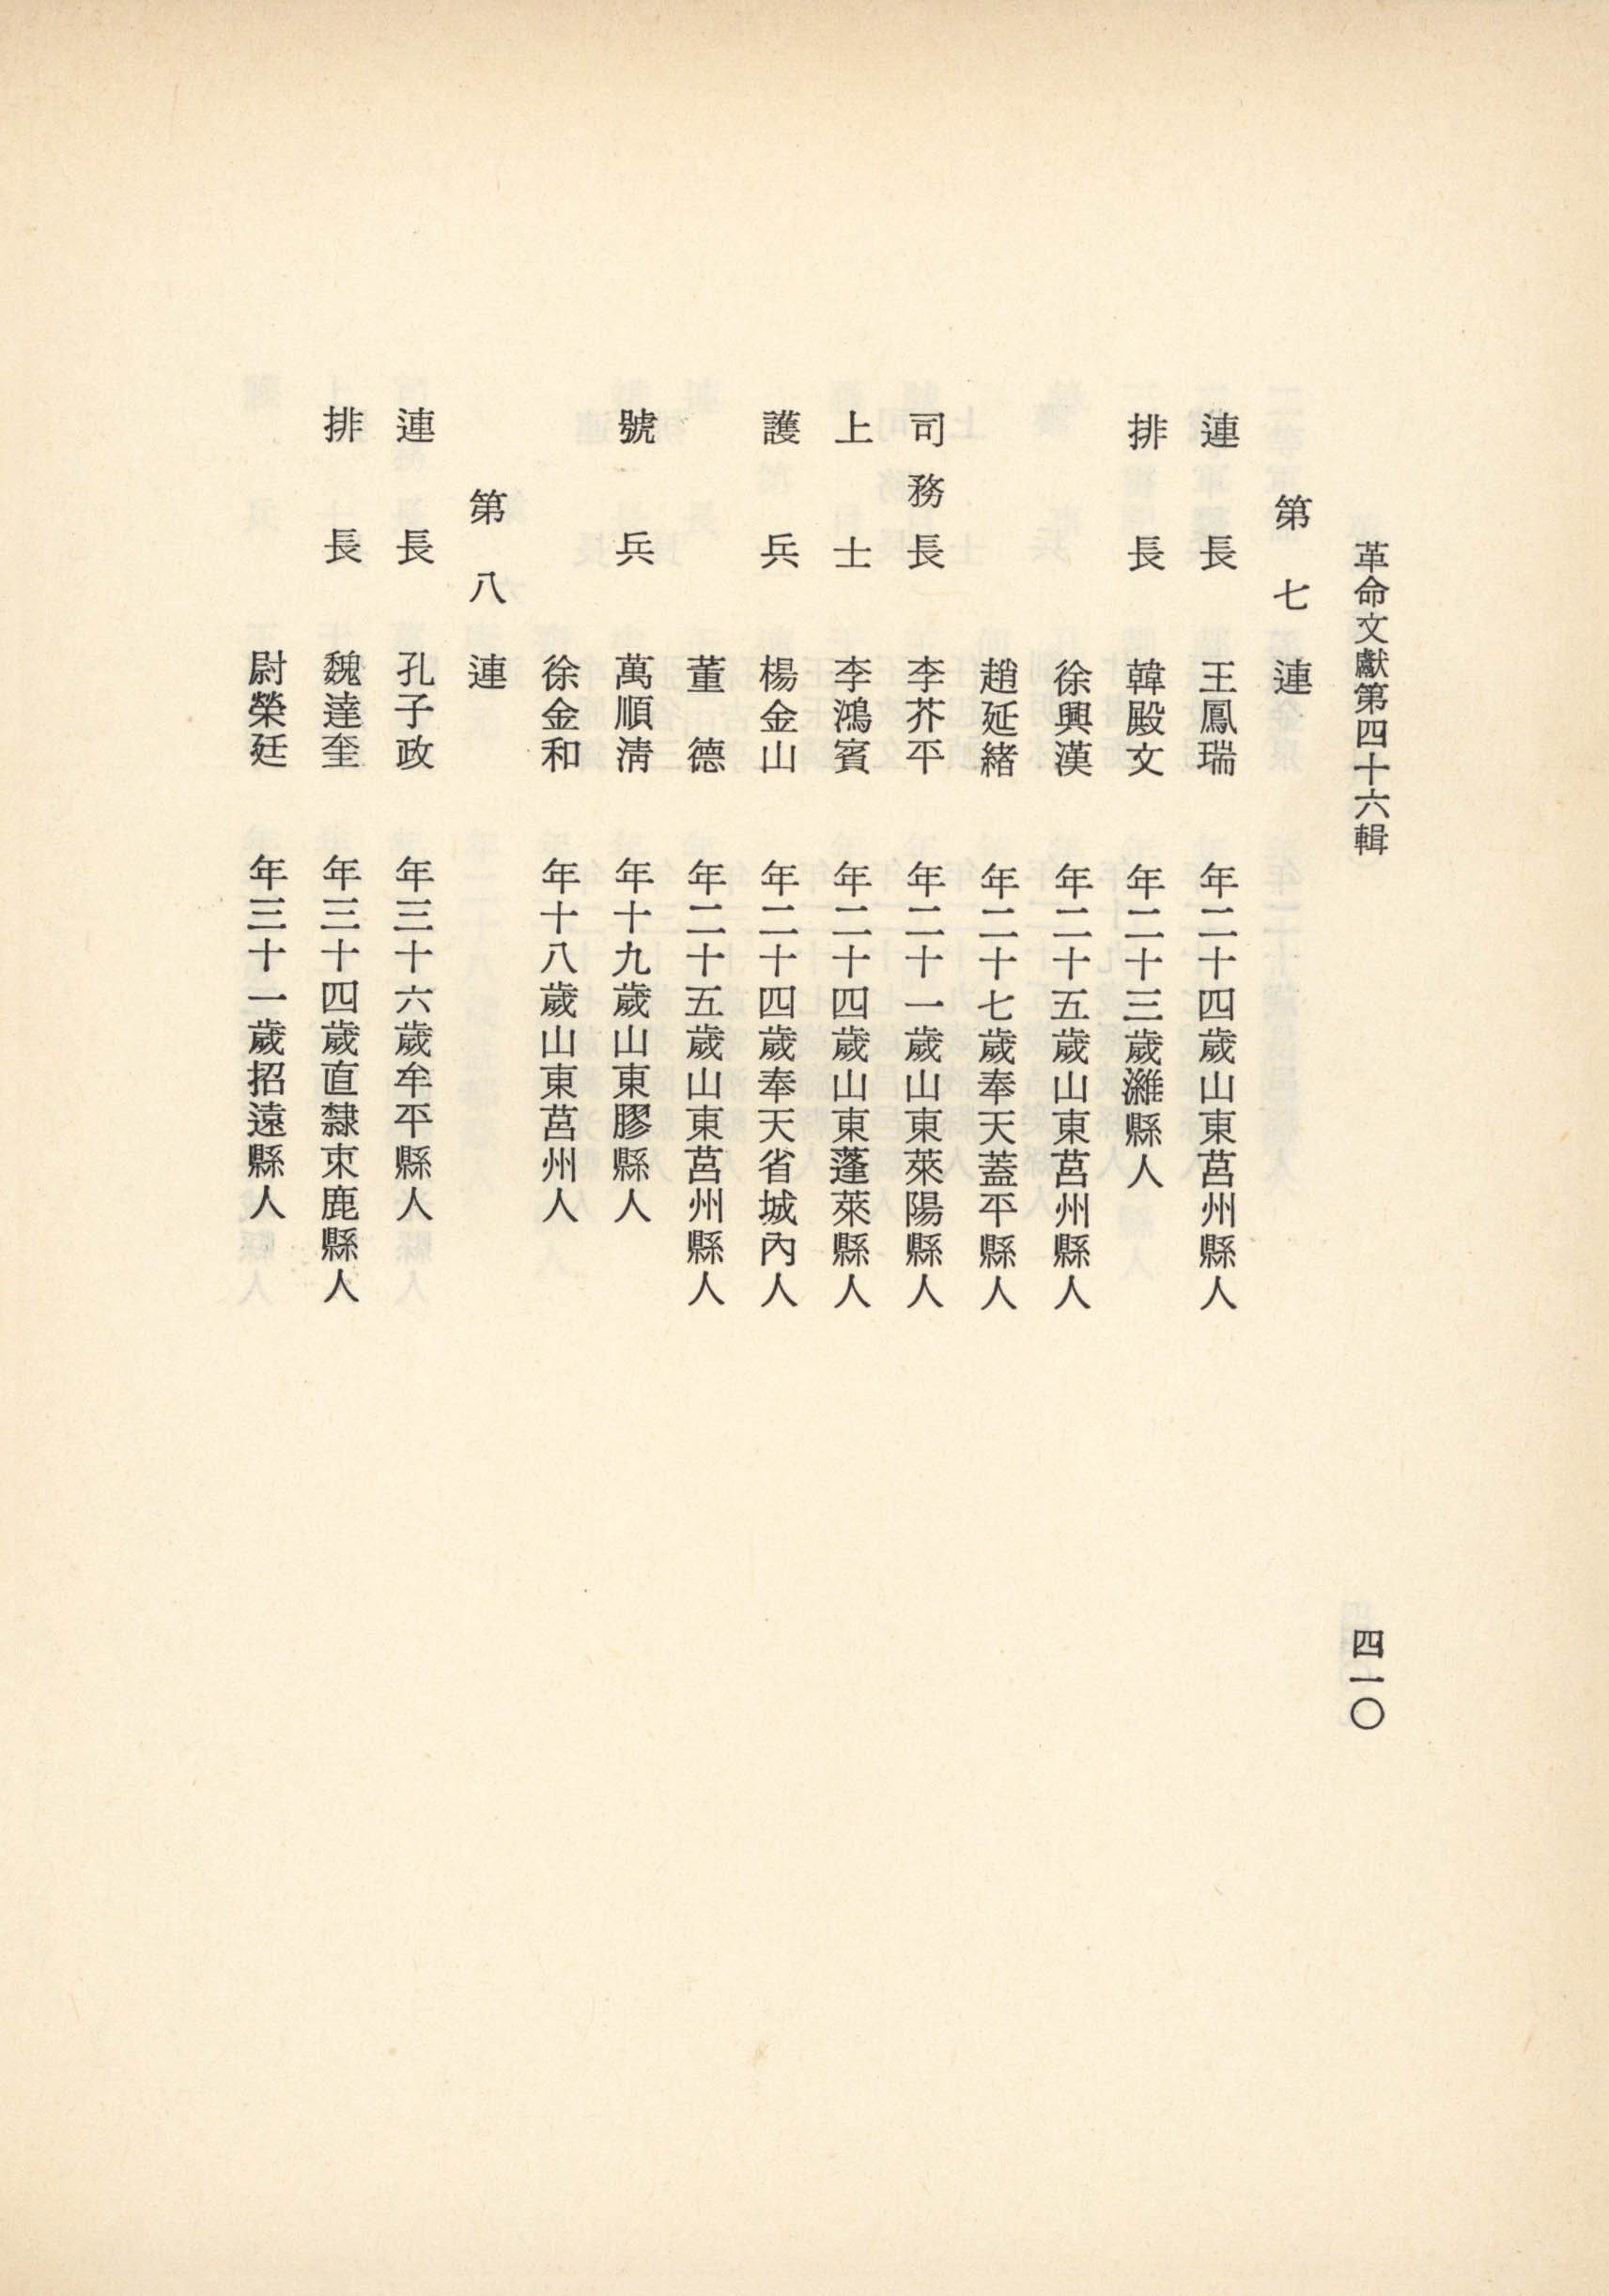 革命文獻第四十六輯
四一〇
第七連
連長 王鳳瑞 年二十四歲山東莒州縣人
排長 韓殿文 年二十三歲濰縣人
徐興漢 年二十五歲山東莒州縣人
趙延緒 年二十七歲奉天蓋平縣人
司務長 李芥平 年二十一歲山東萊陽縣人
上士 李鴻賓 年二十四歲山東蓬萊縣人
護兵 楊金山 年二十四歲奉天省城內人
董德 年二十五歲山東莒州縣人
號兵 萬順清 年十九歲山東膠縣人
徐金和 年十八歲山東莒州人
第八連
連長 孔子政 年三十六歲牟平縣人
排長 魏達奎 年三十四歲直隸束鹿縣人
尉榮廷 年三十一歲招遠縣人